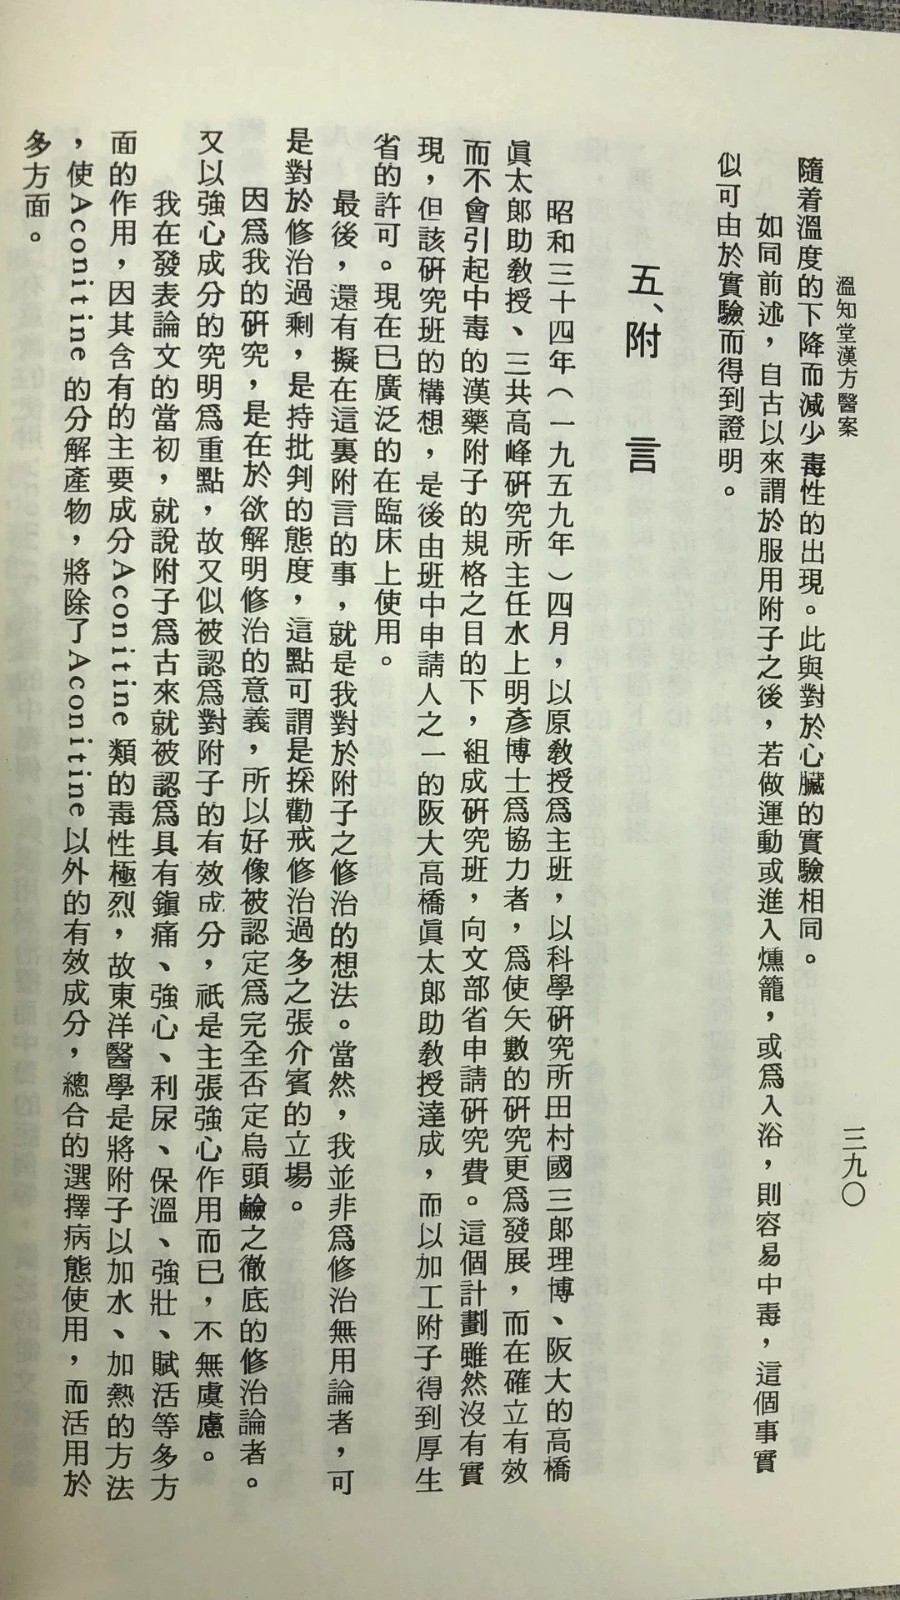 溫知堂漢方醫案
三九〇
隨着溫度的下降而減少毒性的出現。此與對於心臟的實驗相同。
如同前述，自古以來謂於服用附子之後，若做運動或進入燻籠，或爲入浴，則容易中毒，這個事實
似可由於實驗而得到證明。
五、附言
昭和三十四年（一九五九年）四月，以原敎授爲主班，以科學硏究所田村國三郞理博、阪大的高橋
眞太郞助敎授、三共高峰硏究所主任水上明彥博士爲協力者，爲使矢數的硏究更爲發展，而在確立有效
而不會引起中毒的漢藥附子的規格之目的下，組成硏究班，向文部省申請硏究費。這個計劃雖然沒有實
現，但該硏究班的構想，是後由班中申請人之一的阪大高橋眞太郞助敎授達成，而以加工附子得到厚生
省的許可。現在已廣泛的在臨床上使用。
最後，還有擬在這裏附言的事，就是我對於附子之修治的想法。當然，我並非爲修治無用論者，可
是對於修治過剩，是持批判的態度，這點可謂是採勸戒修治過多之張介賓的立場。
因爲我的硏究，是在於欲解明修治的意義，所以好像被認定爲完全否定烏頭鹼之徹底的修治論者。
又以強心成分的究明爲重點，故又似被認爲對附子的有效成分，祇是主張強心作用而已，不無虞慮。
我在發表論文的當初，就說附子爲古來就被認爲具有鎭痛、強心、利尿、保溫、強壯、賦活等多方
面的作用，因其含有的主要成分Aconitine 類的毒性極烈，故東洋醫學是將附子以加水、加熱的方法
，使Aconitine 的分解產物，將除了Aconitine 以外的有效成分，總合的選擇病態使用，而活用於
多方面。